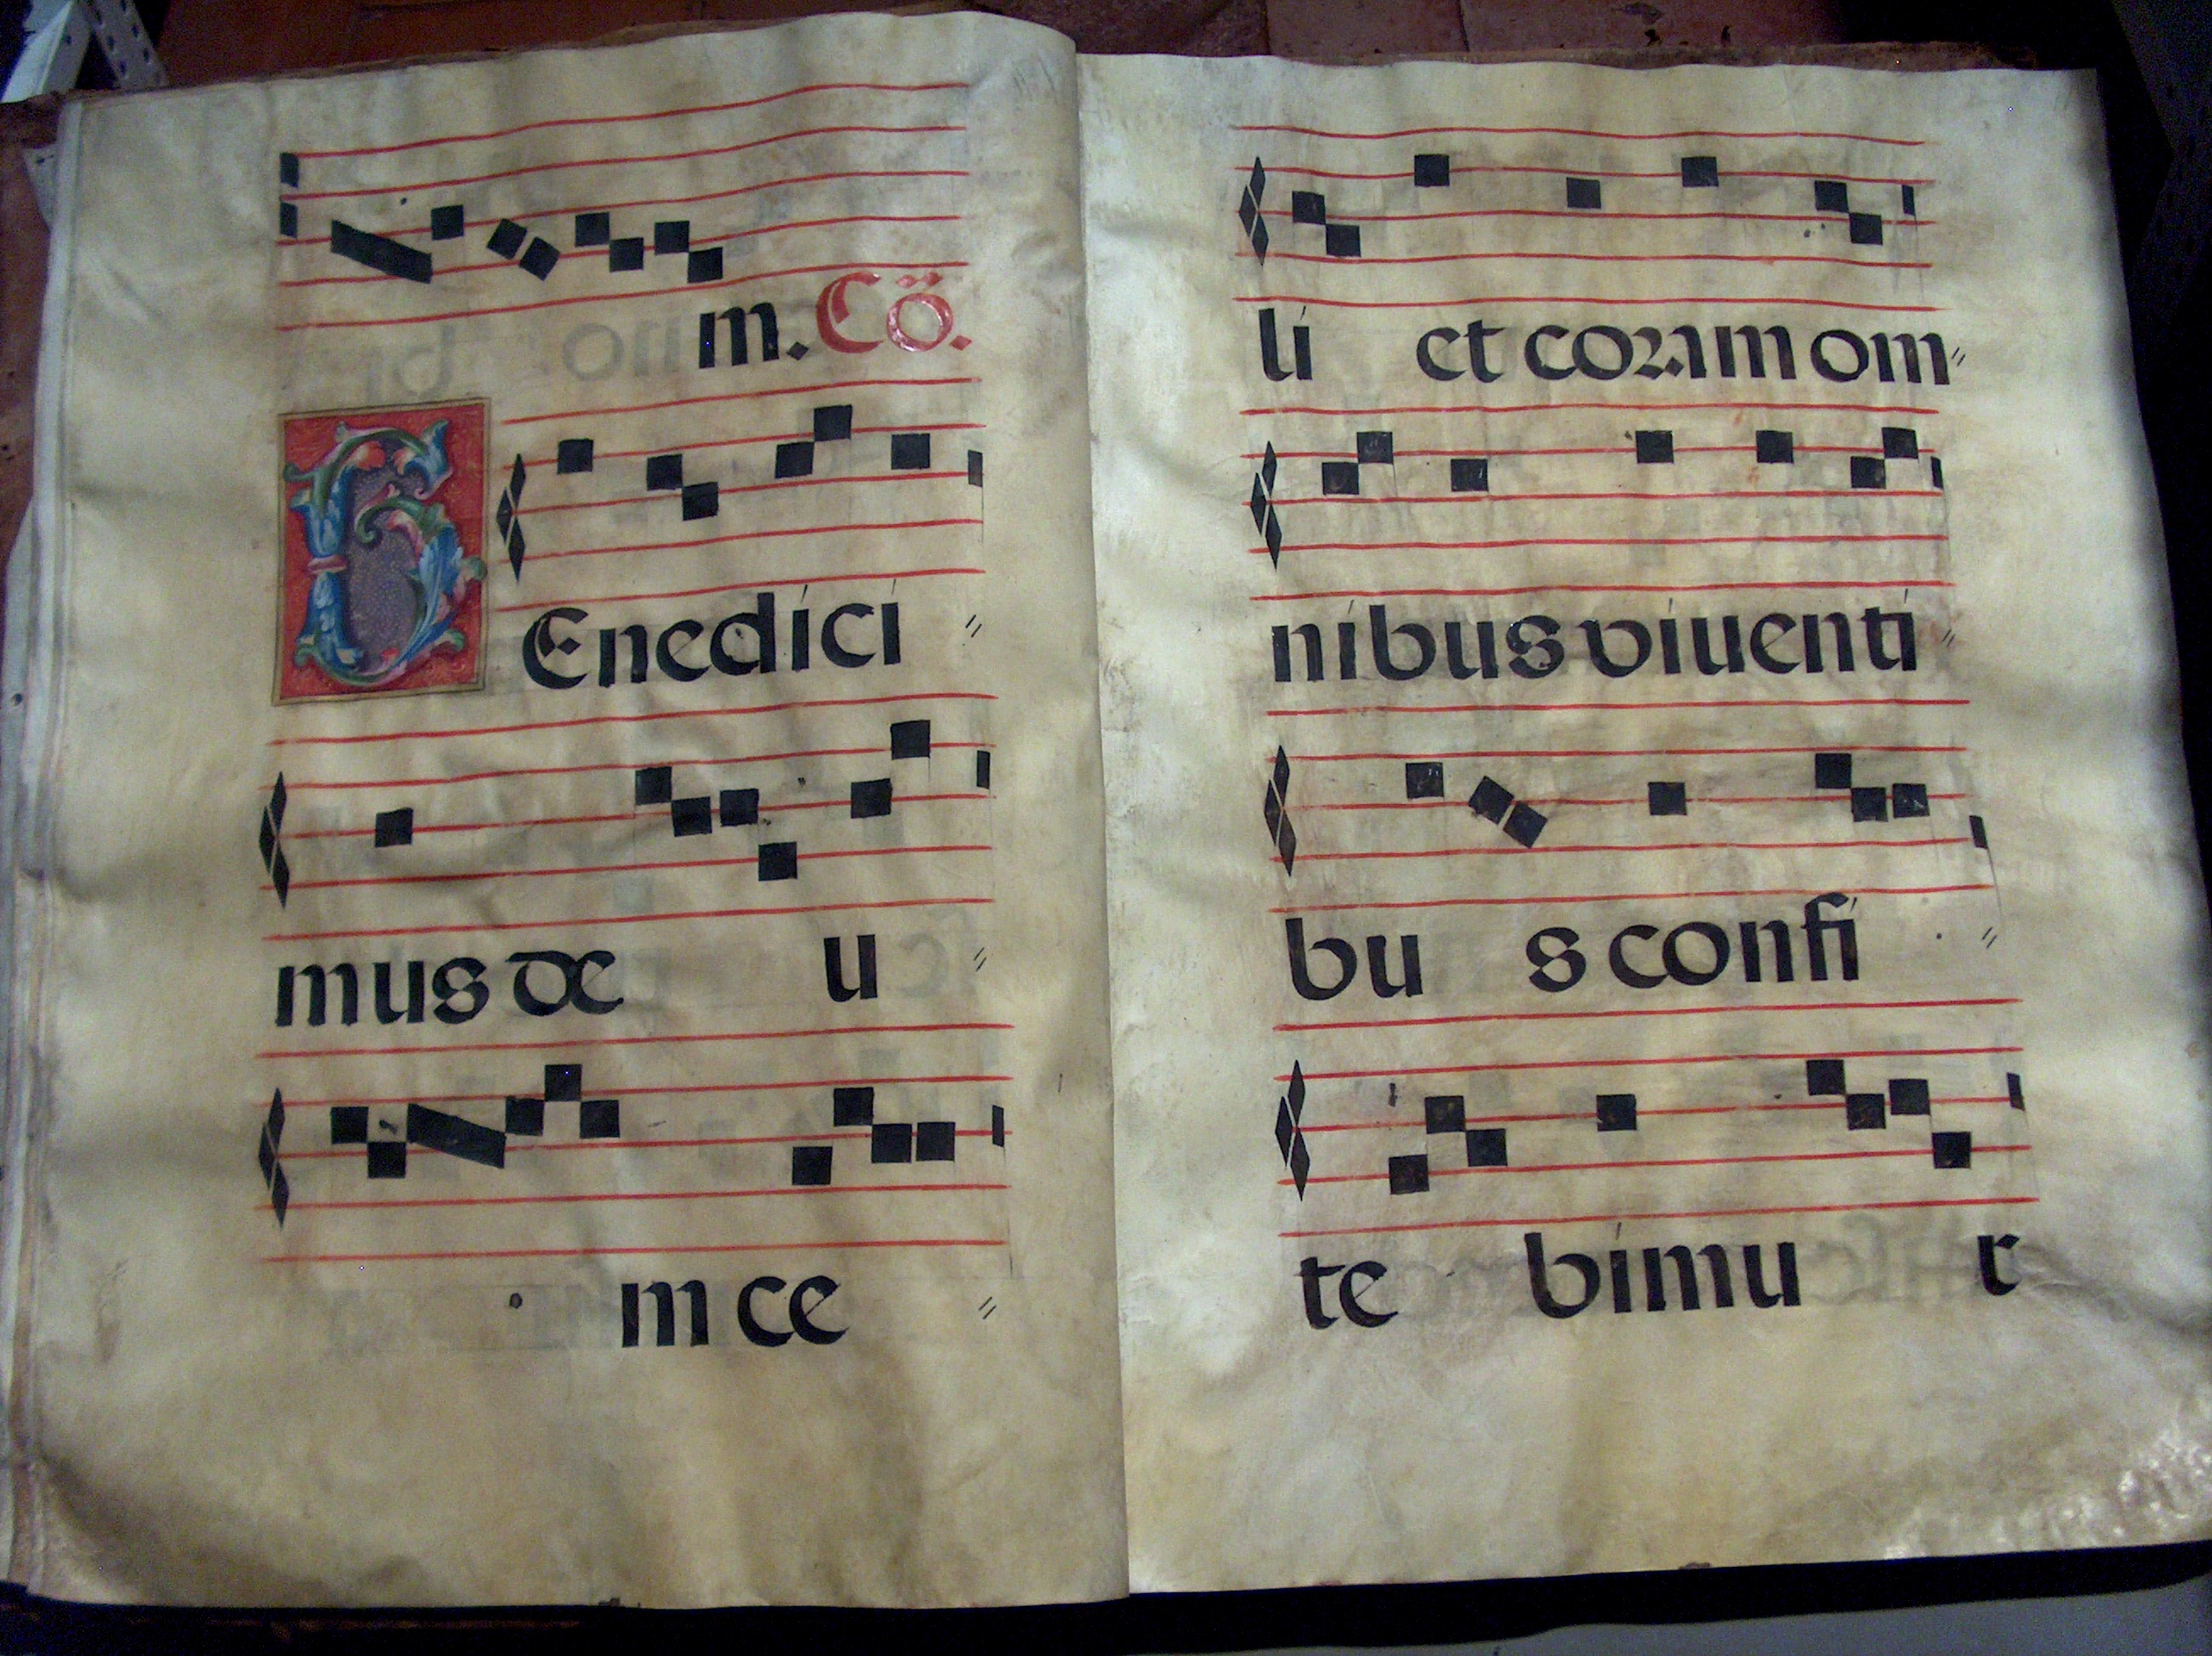 m. Cõ.
BEnedici〃
mus de u〃
m ce〃
li et coram om〃
nibus viuenti〃
bu s confi〃
te bimu r